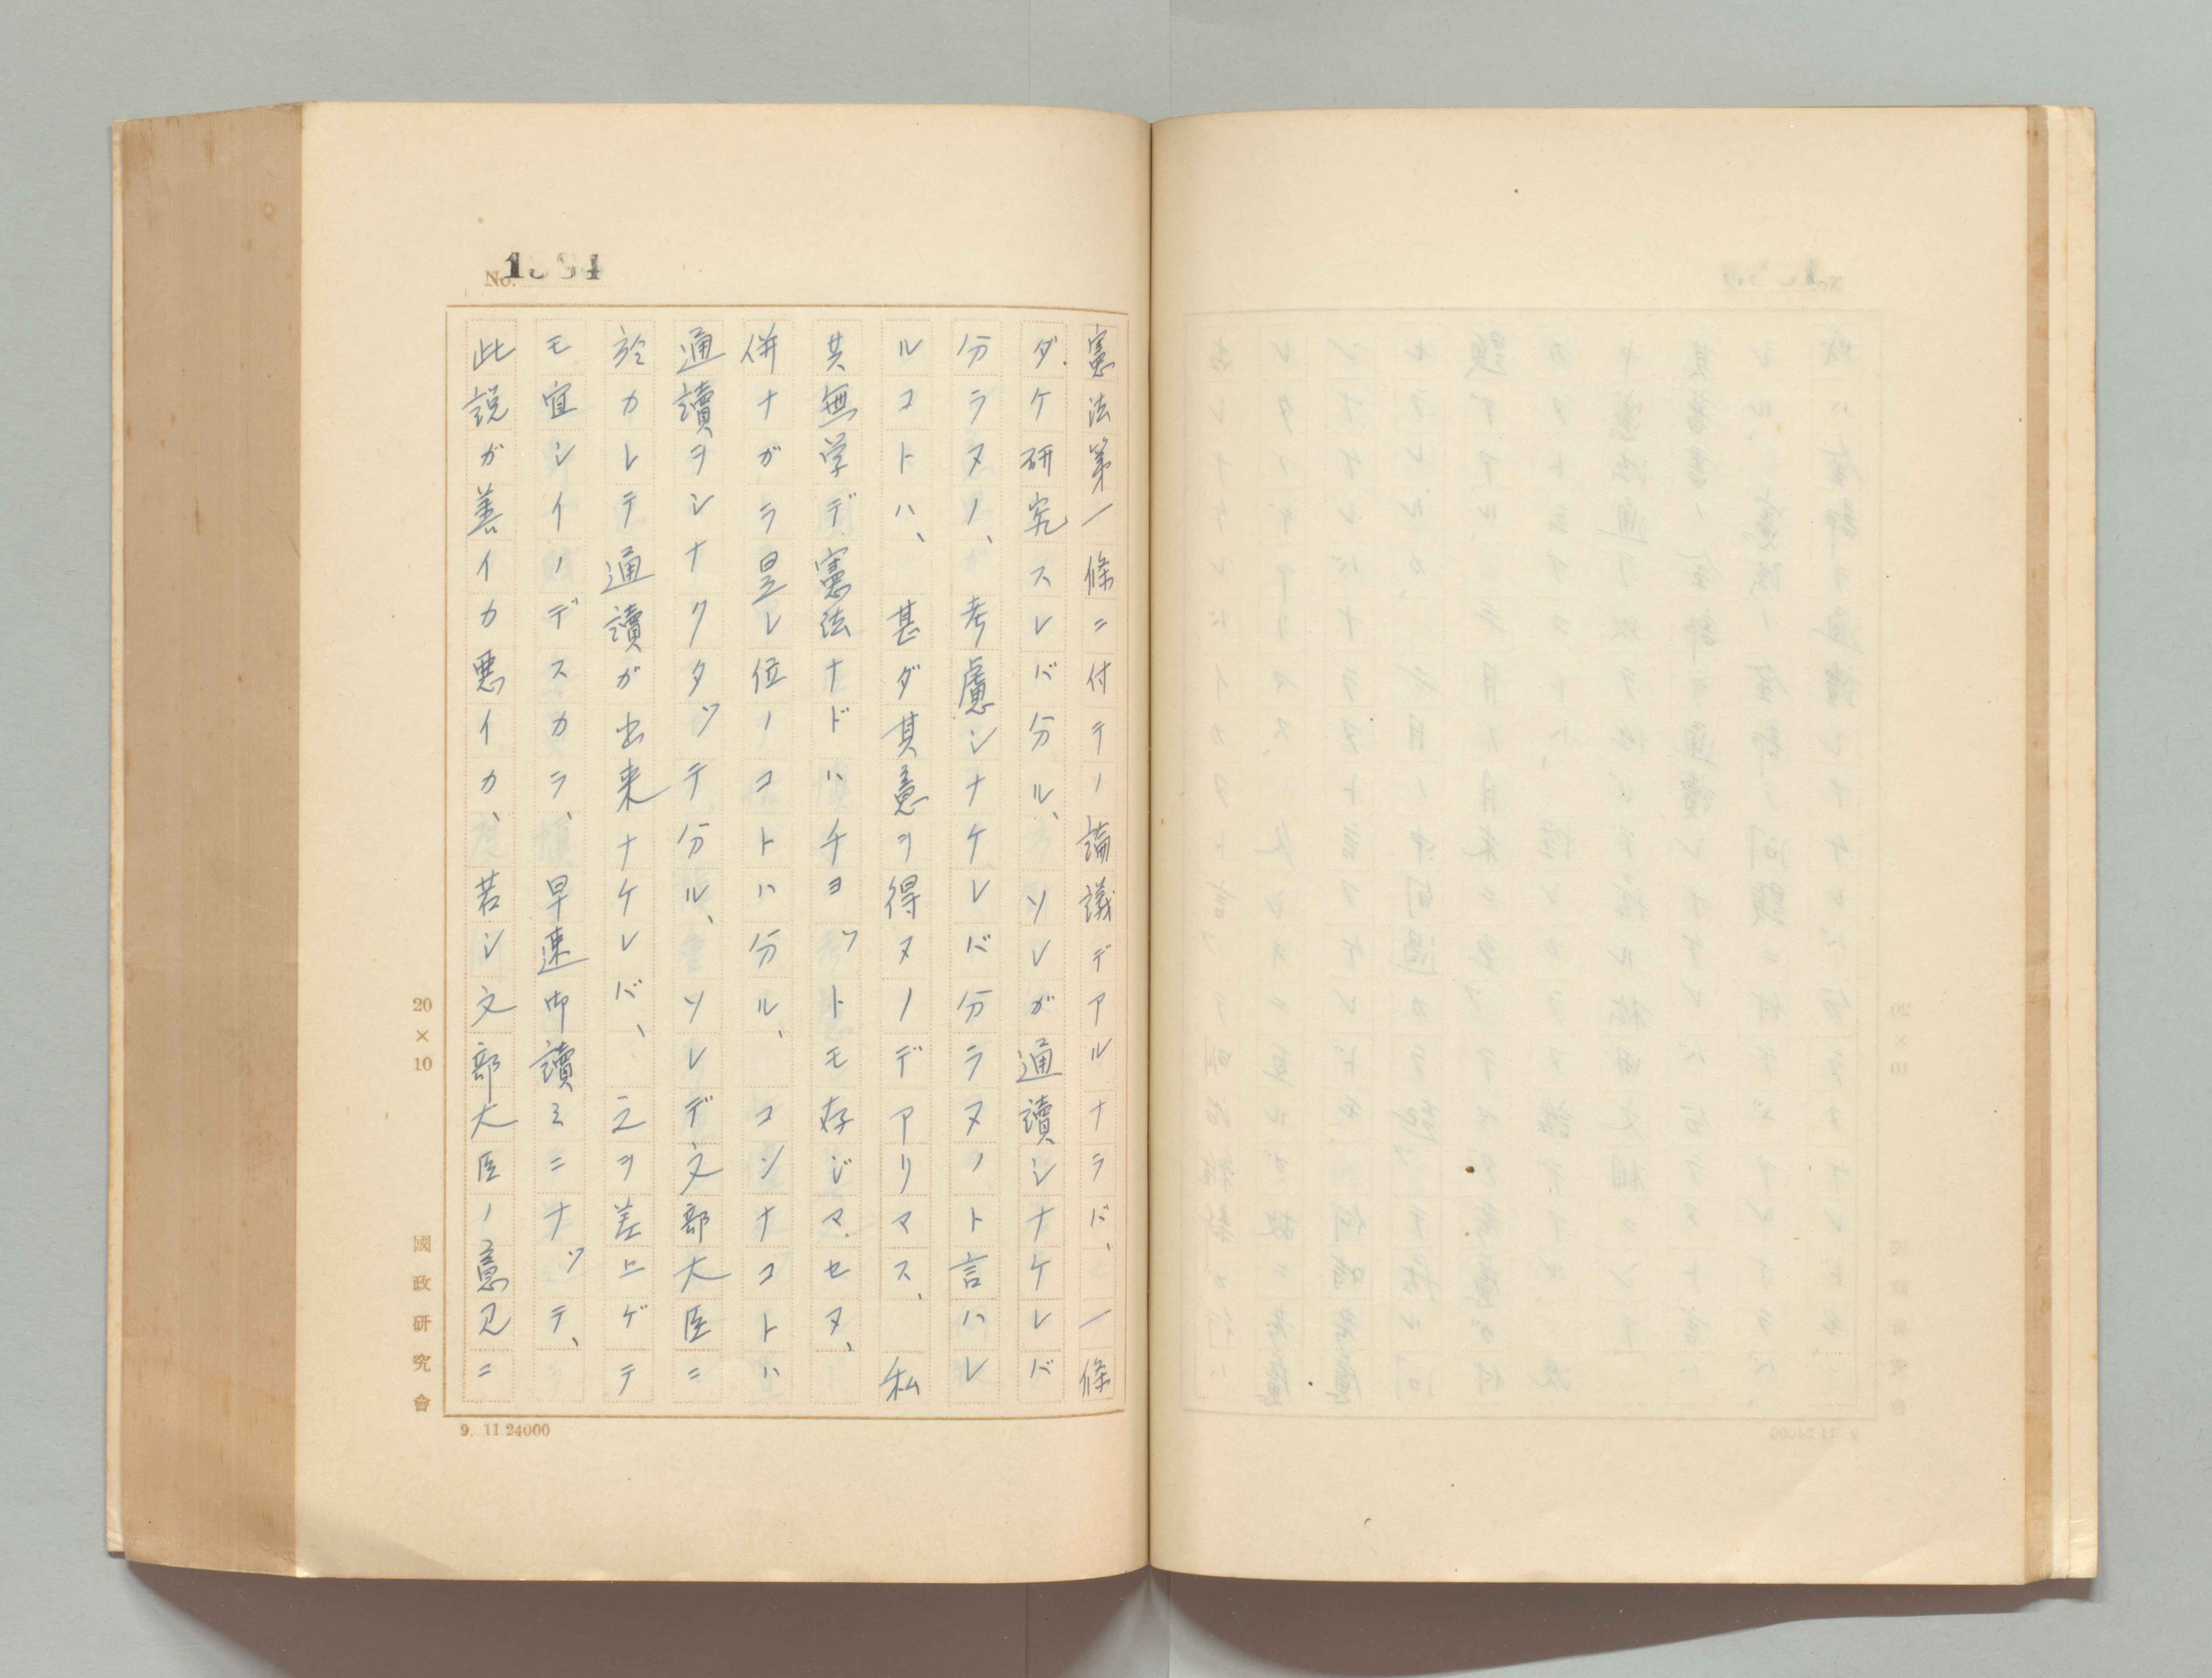 No. 1394
憲法第一條ニ付テノ論議デアルナラバ、一條
ダケ研究スレバ分ル、ソレガ通讀シナケレバ
分ラヌノ、考慮シナケレバ分ラヌノト言ハレ
ルコトハ、甚ダ其意ヲ得ヌノデアリマス、私
共無学デ憲法ナドハチヨツトモ存ジマセヌ、
併ナガラ是レ位ノコトハ分ル、コンナコトハ
通讀ヲシナクタツテ分ル、ソレデ文部大臣ニ
於カレテ通讀ガ出来ナケレバ、之ヲ差上ゲテ
モ宜シイノデスカラ、早速御讀ミニナツテ、
此説ガ善イカ悪イカ、若シ文部大臣ノ意見ニ
20×10
國政研究會
9. 11 24000